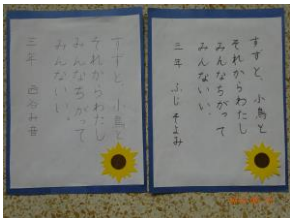 すずと、小鳥と
それからわたし
みんなちがって
みんないい。
三年 ふじ
すずと、小鳥と
それからわたし
みんなちがって
みんないい。
三年